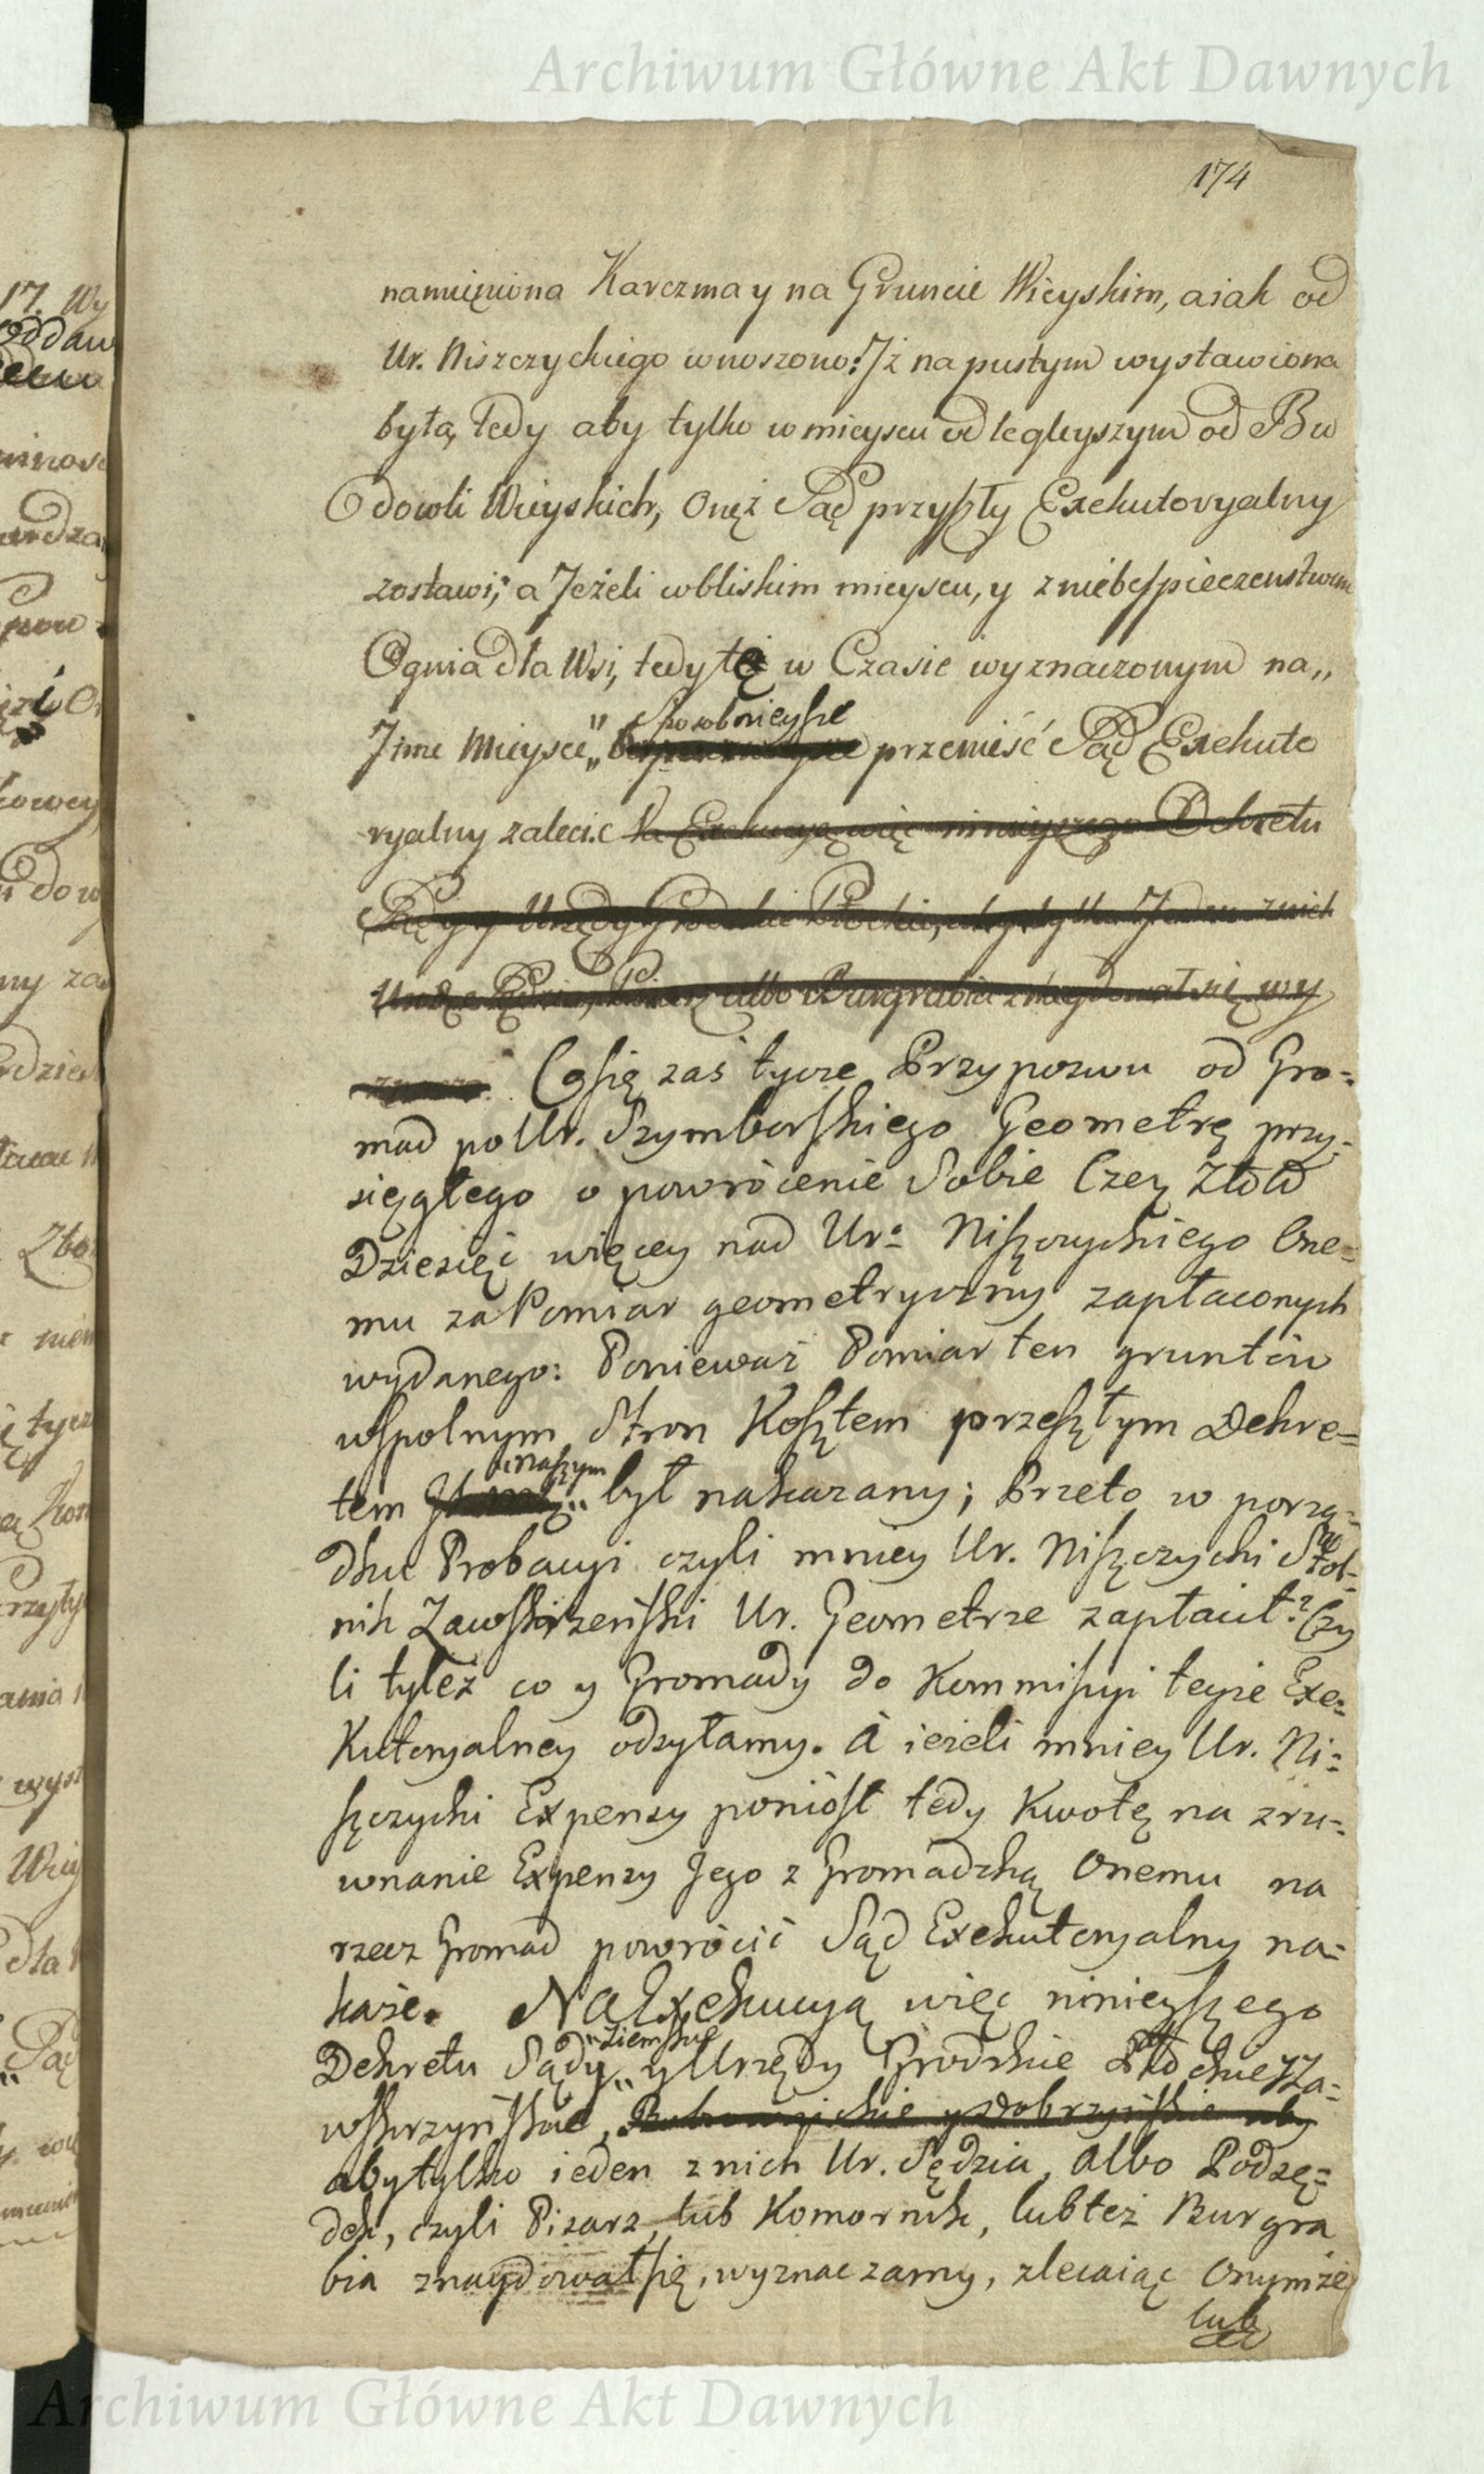 Archiwum Główne Akt Dawnych
174
namięniona Karczma y na Gruncie Wieyskim, a iak od
Ur. Niszczyckiego wnoszono: Jż na pustym wystawiona
była, tedy aby tylko w mieyscu odlegleyszym od Bu
dowli Wieyskich, Onęż Sąd przyszły Exekutoryalny
zostawi; a Jeżeli w bliskim mieyscu, y z niebespieczenstwem
Ognia dla Wsi, tedy tę w Czasie wyznaczonym na„
Jnne Mieysce „
Sposobnieysze
przenieść Sąd Exekuto
ryalny zaleci. Na Exekucyą więc ninieyszego Dekretu
Sądy y Urzędy Grodzkie Płockie, aby tylko Jeden z nich
Urodze. Sędzia, Pisarz albo Burgrabia znaydował się wy
Co się zaś tycze Przypozwu od Gro=
mad po Ur. Szymborskiego Geometrę przy=
sięgłego o powrócenie Sobie Czer. Złoł
Dziesięć więcey nad Ur. Niszczyckiego One=
mu za Pomiar geometryczny zapłaconych
wydanego: Ponieważ Pomiar ten gruntów
wspolnym Stron Kosztem przeszłym Dekre=
naszym
tem „ był nakazany; Przeto w porzą=
dku Probacyi czyli mniey Ur. Niszczycki Stol=
nik Zawskrzeński Ur. Geometrze zapłacił? Czy
li tyleż co y Gromady do Kommissyi teyże Exe=
Kutoryalney odsyłamy. A ieżeli mniey Ur. Ni=
szczycki Expensy poniósł tedy Kwotę na zru=
wnanie Expensy Jego z Gromadzką Onemu na
rzecz Gromad powrócić Sąd Exekutoryalny na=
każe. Na Exekucyą więc ninieyszego
„Ziemskie
Dekretu Sądy „ y Urzędy Grodzkie Płockie y Za=
wskrzyńskie, y Dobrzyńskie aby
aby tylko ieden z nich Ur. Sędzia, albo Podsę=
dek, czyli Pisarz, lub Komornik, lub też Burgra
bia znaydował się, wyznaczamy, zlecaiąc Onymże
lub
Archiwum Główne Akt Dawnych